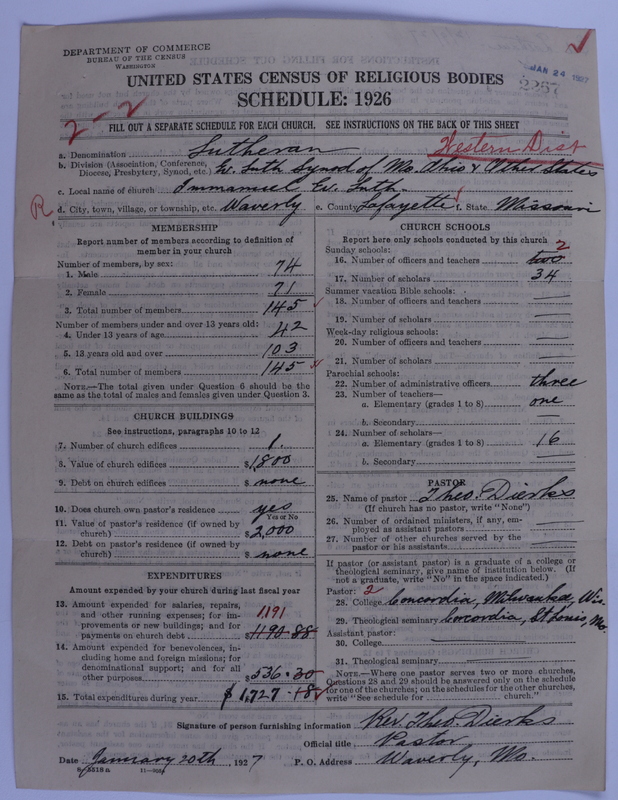 DEPARTMENT OF COMMERCE
BUREAU OF THE CENSUS
WASHINGTON
JAN 24 1927
2257
UNITED STATES CENSUS OF RELIGIOUS BODIES
SCHEDULE: 1926
2-2
FILL OUT A SEPARATE SCHEDULE FOR EACH CHURCH. SEE INSTRUCTIONS ON THE BACK OF THIS SHEET
Western Dist
a. Denomination Lutheran
b. Division (Association, Conference, Diocese, Presbytery, Synod, etc.) Ev. Luth Synod of Mo. Ohio & Other States
c. Local name of church Immanuel Ev. Luth.
R
d. City, town, village, or township, etc. Waverly e. County Lafayette f. State Missouri
MEMBERSHIP
Report number of members according to definition of
member in your church
Number of members, by sex:
1. Male 74
2. Female 71
3. Total number of members 145
Number of members under and over 13 years old:
4. Under 13 years of age 42
5. 13 years old and over 103
6. Total number of members 145
NOTE.—The total given under Question 6 should be the
same as the total of males and females given under Question 3.
CHURCH BUILDINGS
See instructions, paragraphs 10 to 12
7. Number of church edifices 1.
8. Value of church edifices $1800
9. Debt on church edifices $ none
10. Does church own pastor's residence yes
Yes or No
11. Value of pastor's residence (if owned by
church) $2,000
12. Debt on pastor's residence (if owned by
church) $ none
EXPENDITURES
Amount expended by your church during last fiscal year
13. Amount expended for salaries, repairs,
and other running expenses; for im-
provements or new buildings; and for
payments on church debt 1191 $1190.88
14. Amount expended for benevolences, in-
cluding home and foreign missions; for
denominational support; and for all
other purposes $536.30
15. Total expenditures during year $1,727.18
CHURCH SCHOOLS
Report here only schools conducted by this church
Sunday schools: 2
16. Number of officers and teachers two
17. Number of scholars 34
Summer vacation Bible schools:
18. Number of officers and teachers
19. Number of scholars
Week-day religious schools:
20. Number of officers and teachers
21. Number of scholars
Parochial schools:
22. Number of administrative officers three
23. Number of teachers—
a. Elementary (grades 1 to 8) one
b. Secondary
24. Number of scholars—
a. Elementary (grades 1 to 8) 16
b. Secondary
PASTOR
25. Name of pastor Theo. Dierks
(If church has no pastor, write "None")
26. Number of ordained ministers, if any, em-
ployed as assistant pastors
27. Number of other churches served by the
pastor or his assistants
If pastor (or assistant pastor) is a graduate of a college or
theological seminary, give name of institution below. (If
not a graduate, write "No" in the space indicated.)
Pastor: 2
28. College Concordia, Milwaukee, Wis.
29. Theological seminary Concordia, St Louis, Mo.
Assistant pastor:
30. College
31. Theological seminary
NOTE.—Where one pastor serves two or more churches,
Questions 28 and 29 should be answered only on the schedule
for one of the churches; on the schedules for the other churches,
write "See schedule for church."
Signature of person furnishing information Rev. Theo. Dierks
Official title Pastor
Date January 20th, 1927 P. O. Address Waverly, Mo.